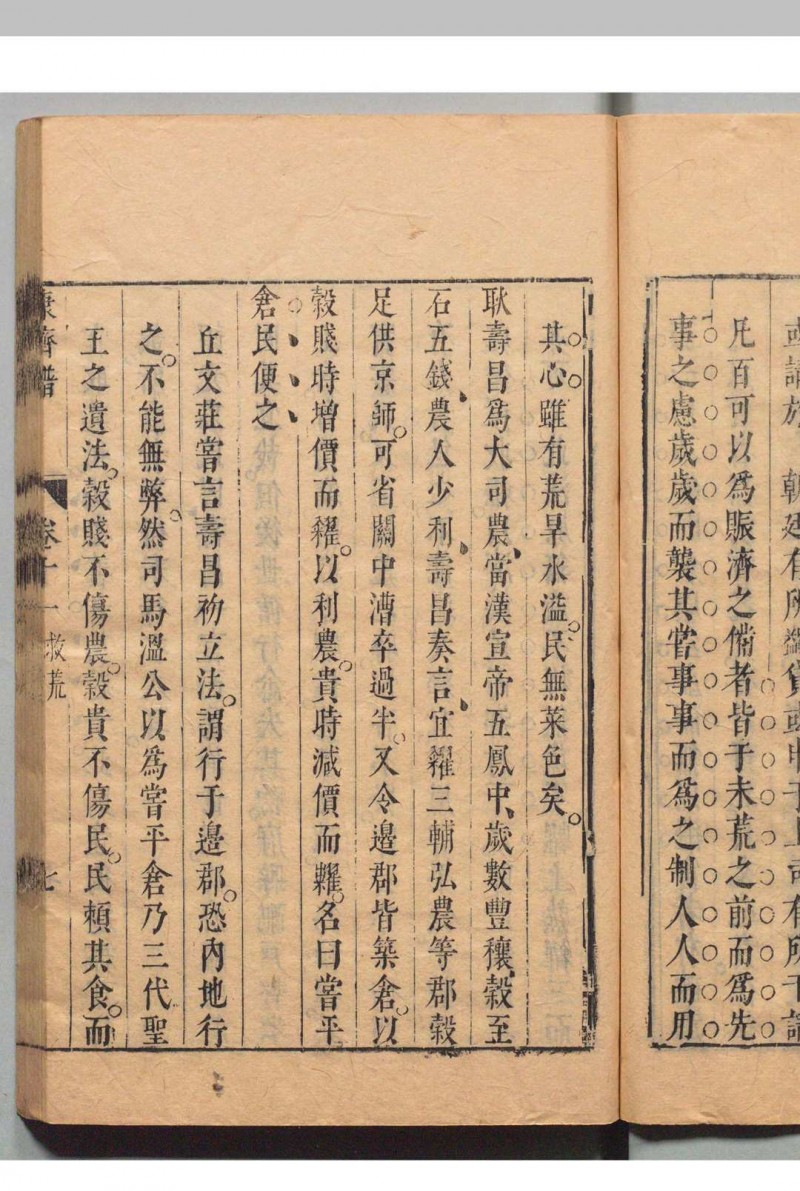 凡百可以爲賑濟之備者皆于未荒之前而爲先
事之慮歲歲而襲其嘗事事而爲之制人人而用
其心雖有荒旱水溢民無菜色矣
耿壽昌爲大司農當漢宣帝五鳳中歲數豐穰穀至
石五錢農人少利壽昌奏言宜糴三輔弘農等郡穀
足供京師可省關中漕卒過半又令邊郡皆築倉以
穀賤時增價而糴以利農貴時減價而糶名曰嘗平
倉民便之
丘文莊嘗言壽昌初立法謂行于邊郡恐內地行
之不能無弊然司馬溫公以爲嘗平倉乃三代聖
王之遺法穀賤不傷農穀貴不傷民民賴其食而
康濟譜 卷十一 救荒 七